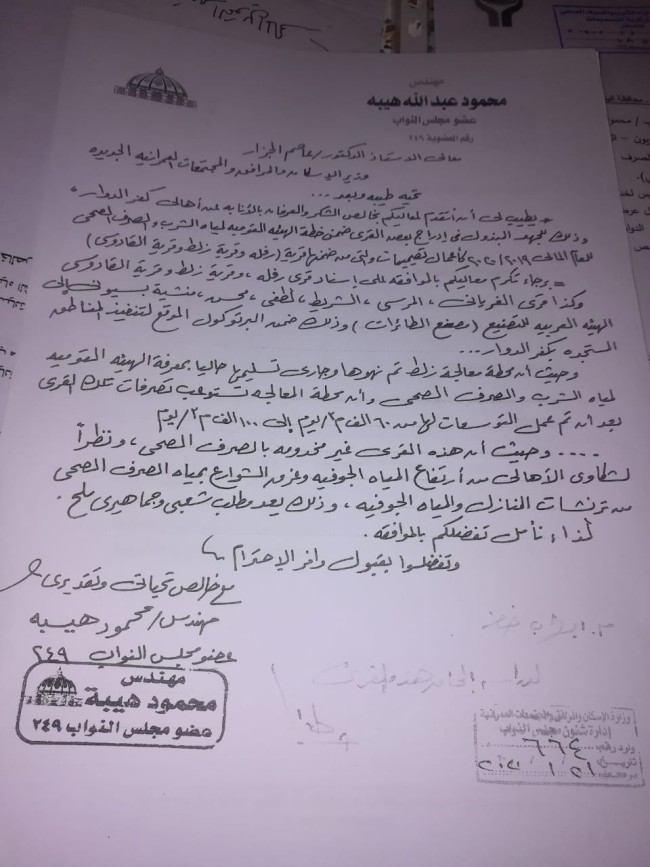 مهندس
محمود عبد الله هيبه
عضو مجلس النواب
رقم العضوية ٢٤٩
معالى الاستاذ الدكتور/عاصم الجزار
وزير الإسكان والمرافق والمجتمعات العمرانيه الجديده
تحيه طيبه وبعد ...
* يطيب لى أن أتقدم لمعاليكم بخالص الشكر والعرفان بالأنابه عن أهالى كفر الدوار
وذلك للجهد المبذول فى إدراج بعض القرى ضمن خطة الهيئه القوميه لمياه الشرب والصرف الصحى
للعام المالى ٢٠١٩/٢٠٢٠ كأعمال تصميمات والتى من ضمنها قرية (رفله وقرية زلط وقرية القاروص)
= برجاء تكرم معاليكم بالموافقه على إسناد قرى رفله ، وقرية زلط وقرية القاروص
وكذا قرى الغربانى ، المرسى ، الشريط ، لطفى ، محسن ، منشية بسيونى إلى
الهيئه العربيه للتصنيع (مصنع الطائرات) وذلك ضمن البرتوكول الموقع لتنفيذ المناطق
المستجده بكفر الدوار ...
وحيث أن محطة معالجة زلط تم نهوها وجارى تسليمها حاليا بمعرفة الهيئه القوميه
لمياه الشرب والصرف الصحى وأن محطة المعالجه تستوعب تصرفات تلك القرى
بعد أن تم عمل التوسعات لها من ٦٠ الف م٣/يوم إلى ١٠٠ الف م٣/يوم
.... وحيث أن هذه القرى غير مخدومه بالصرف الصحى ، ونظراً
لشكاوى الأهالى من أرتفاع المياه الجوفيه وغرق الشوارع بمياه الصرف الصحى
من ترنشات المنازل والمياه الجوفيه ، وذلك يعد مطلب شعبى وجماهيرى ملح .
لذا نأمل تفضلكم بالموافقه .
وتفضلوا بقبول وافر الإحترام
مع خالص تحياتى وتقديرى
مهندس/محمود هيبه
عضو مجلس النواب ٢٤٩
مهندس
محمود هيبة
عضو مجلس النواب ٢٤٩
وزارة الإسكان والمرافق والمجتمعات العمرانية
إدارة شئون مجلس النواب
وارد رقم: ٦٦٤
تاريخ: ٢١ / ١ / ٢٠٢١